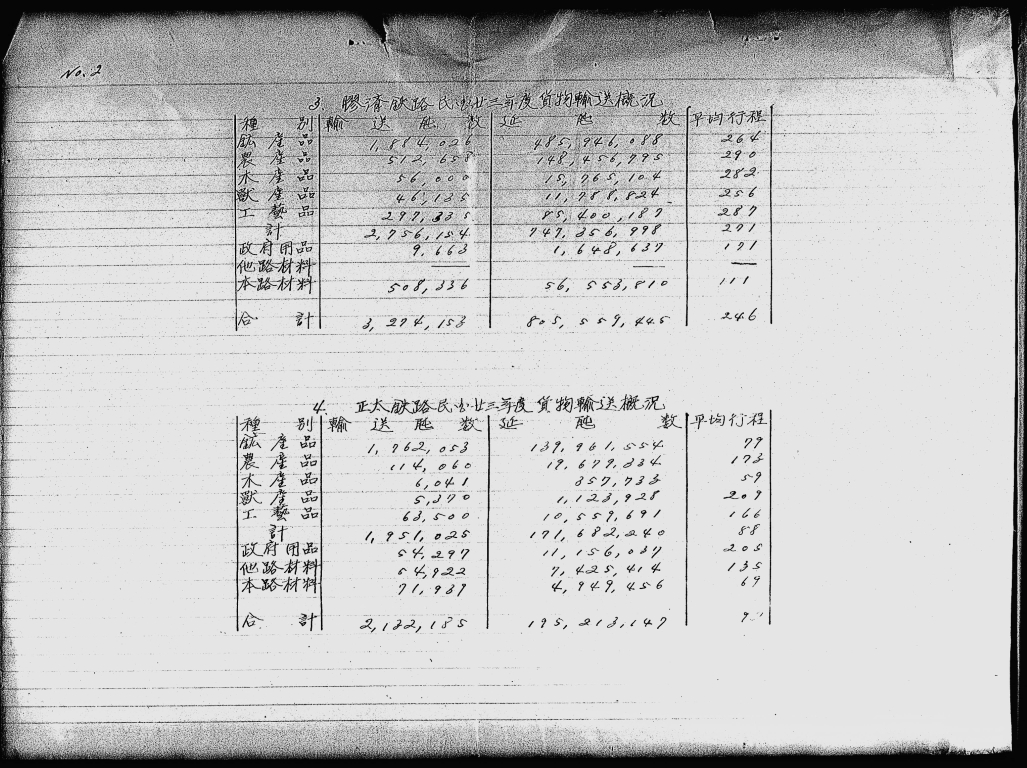 No. 2
3. 膠済鉄路民国廿三年度貨物輸送概況
種別 輸送瓲数 延瓲数 平均行程
鉱産品 1,844,026 485,946,088 264
農産品 512,658 148,456,795 290
木産品 56,000 15,765,104 282
獣産品 46,135 11,788,824 256
工藝品 297,335 85,400,187 287
計 2,756,154 747,356,998 271
政府用品 9,663 1,648,637 171
他路材料 — — —
本路材料 508,336 56,553,810 111
合計 3,274,153 805,559,445 246
4. 正太鉄路民国廿三年度貨物輸送概況
種別 輸送瓲数 延瓲数 平均行程
鉱産品 1,762,053 139,961,554 79
農産品 114,060 19,679,334 173
木産品 6,041 357,733 59
獣産品 5,370 1,123,928 209
工藝品 63,500 10,559,691 166
計 1,951,025 171,682,240 88
政府用品 54,297 11,156,037 205
他路材料 54,922 7,425,414 135
本路材料 71,939 4,949,456 69
合計 2,132,185 195,213,147